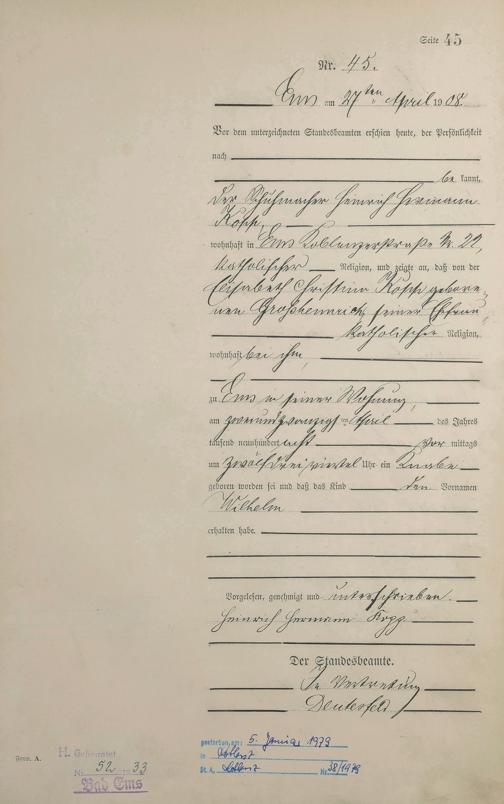 Seite 45
Nr. 45.
Ems am 27ten April 1908.
Vor dem unterzeichneten Standesbeamten erschien heute, der Persönlichkeit
nach
be kannt,
der Schuhmacher Heinrich Hermann
Kopp,
wohnhaft in Ems Koblenzerstraße Nr. 22,
katholischer Religion, und zeigte an, daß von der
Elisabeth Christina Kopp gebore-
nen Großhennrich seiner Ehefrau
katholischer Religion,
wohnhaft bei ihm,
zu Ems in seiner Wohnung,
am zweiundzwanzigsten April des Jahres
tausend neunhundert acht vor mittags
um zwölf dreiviertel Uhr ein Knabe
geboren worden sei und daß das Kind den Vornamen
Wilhelm
erhalten habe.
Vorgelesen, genehmigt und unterschrieben.
Heinrich Hermann Kopp
Der Standesbeamte.
In Vertretung
Form. A.
H. Geheiratet
Nr. 52 33
Bad Ems
gestorben am: 5. Januar 1979
in Koblenz
St. A. Koblenz Nr. 38/1979